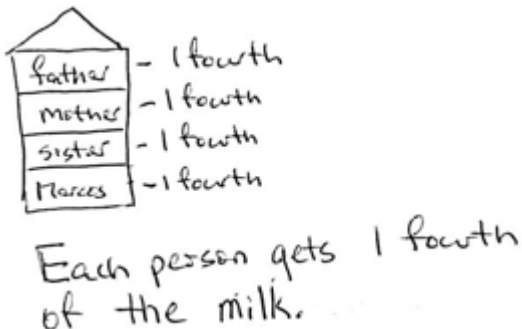 father - 1 fourth
mother - 1 fourth
sister - 1 fourth
Marcos - 1 fourth
Each person gets 1 fourth
of the milk.